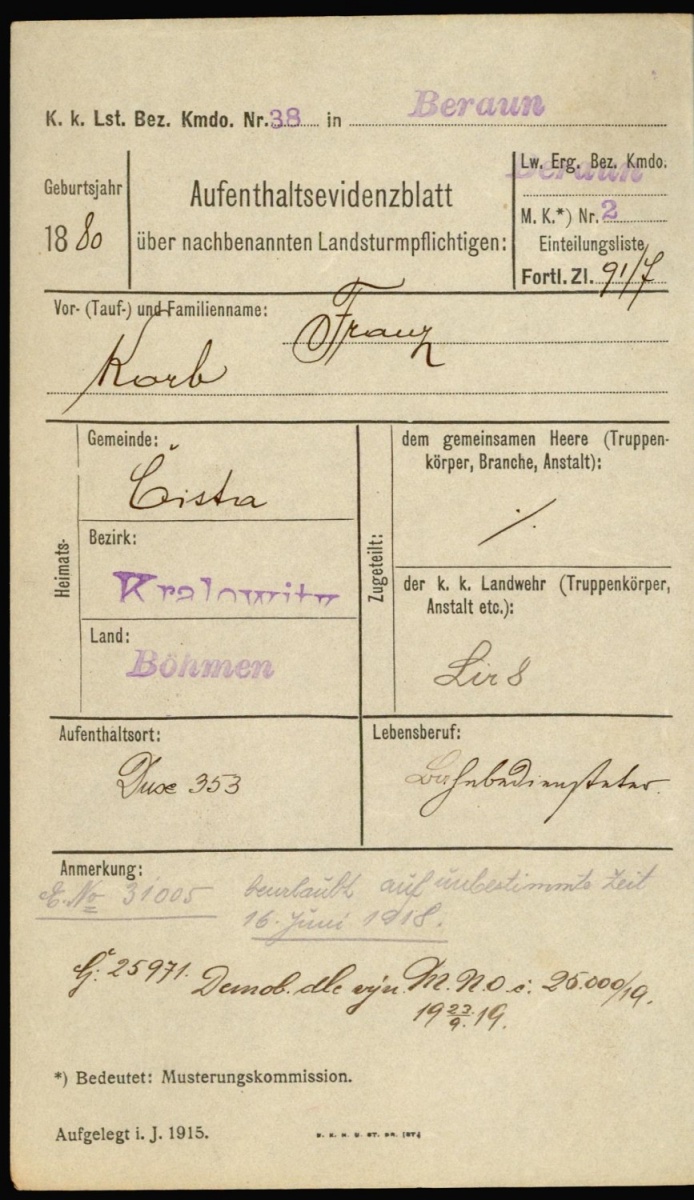 K. k. Lst. Bez. Kmdo. Nr. 38 in Beraun
Geburtsjahr
1880
Aufenthaltsevidenzblatt
über nachbenannten Landsturmpflichtigen:
Lw. Erg. Bez. Kmdo.
Beraun
M. K.*) Nr. 2
Einteilungsliste
Fortl. Zl. 91/7
Vor- (Tauf-) und Familienname:
Franz
Korb
Heimats-
Gemeinde:
Čista
Bezirk:
Kralowitz
Land:
Böhmen
Zugeteilt:
dem gemeinsamen Heere (Truppen-
körper, Branche, Anstalt):
./.
der k. k. Landwehr (Truppenkörper,
Anstalt etc.):
Lir 8
Aufenthaltsort:
Dux 353
Lebensberuf:
Bahnbediensteter.
Anmerkung:
E. No 31005 beurlaubt auf unbestimmte Zeit
16. Juni 1918.
25971. Demob. dle výn. M.N.O. č. 25.000/19.
19 23/9. 19.
*) Bedeutet: Musterungskommission.
Aufgelegt i. J. 1915.